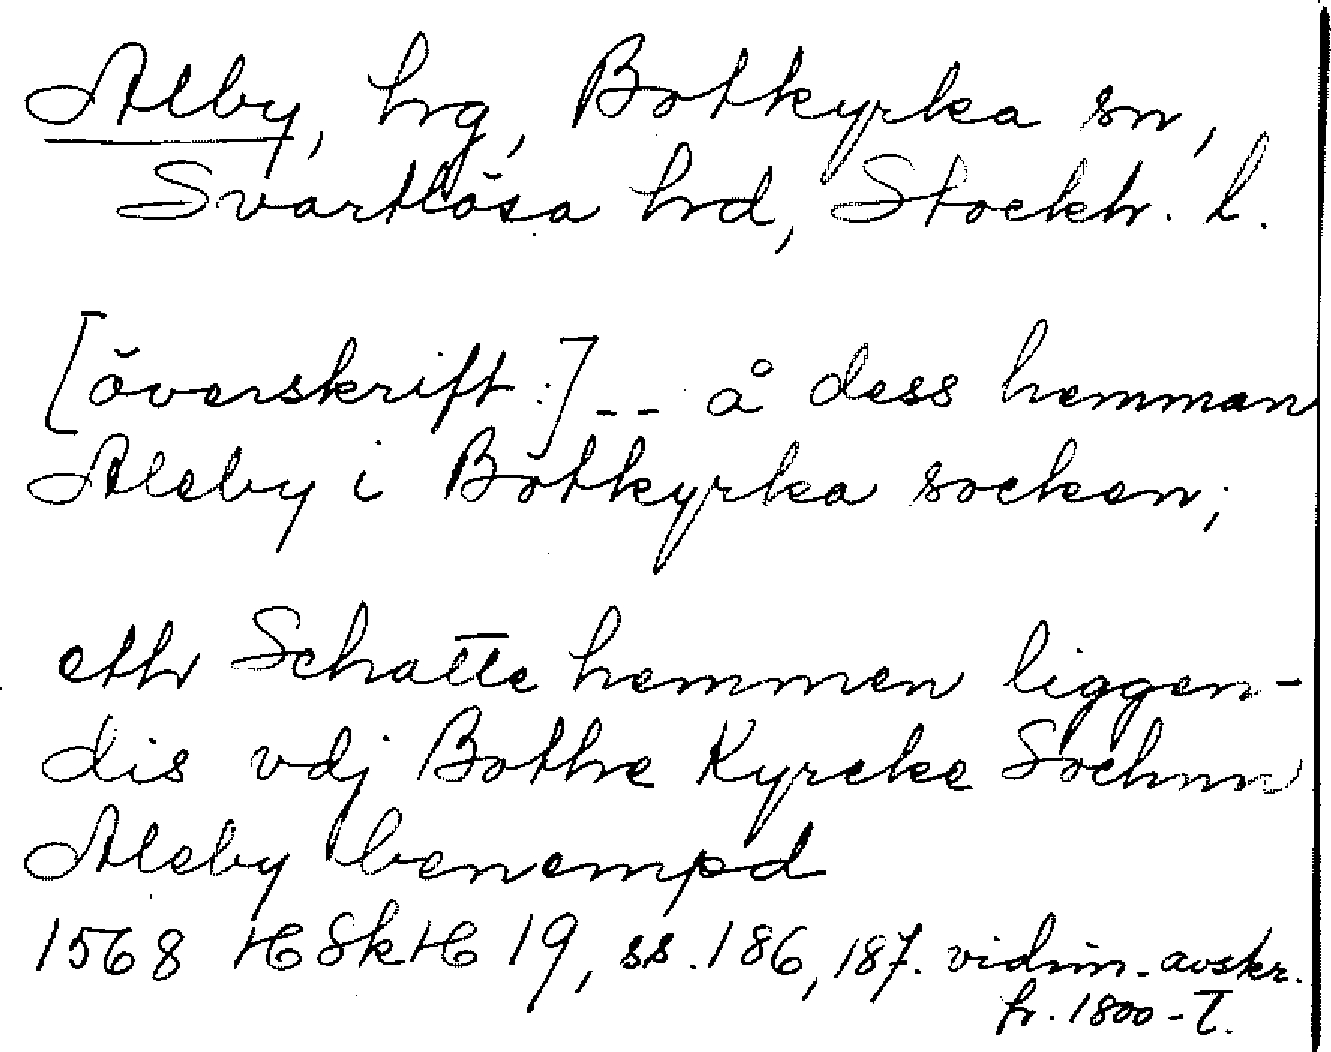 Alby, hg, Botkyrka sn,
Svartlösa hd, Stockh. l.
[överskrift:] -- å dess hemman
Aleby i Botkyrka socken;
eth Schatte hemmen liggen-
dis vdj Bothe Kyrcke Sochnn
Aleby benempd
1568 HSkH 19, ss. 186, 187. vidim. avskr.
fr. 1800-t.